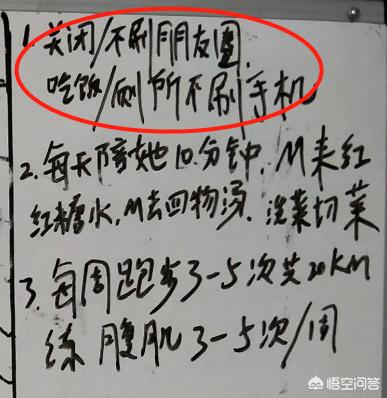 1. 关闭/不刷朋友圈.
吃饭/厕所不刷手机
2. 每天陪她10分钟. M来红
红糖水, M去四物汤. 洗菜切菜
3. 每周跑步3-5次共20KM
练腹肌3-5次/周
悟空问答